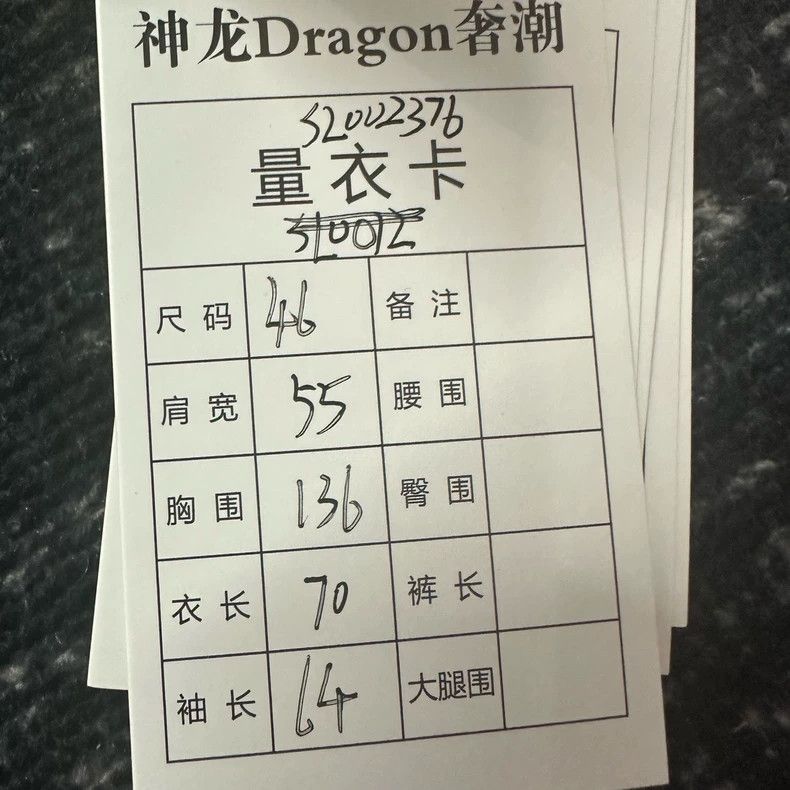 神龙Dragon奢潮
SL002376
量衣卡
SL0012
尺码 46 备注
肩宽 55 腰围
胸围 136 臀围
衣长 70 裤长
袖长 64 大腿围